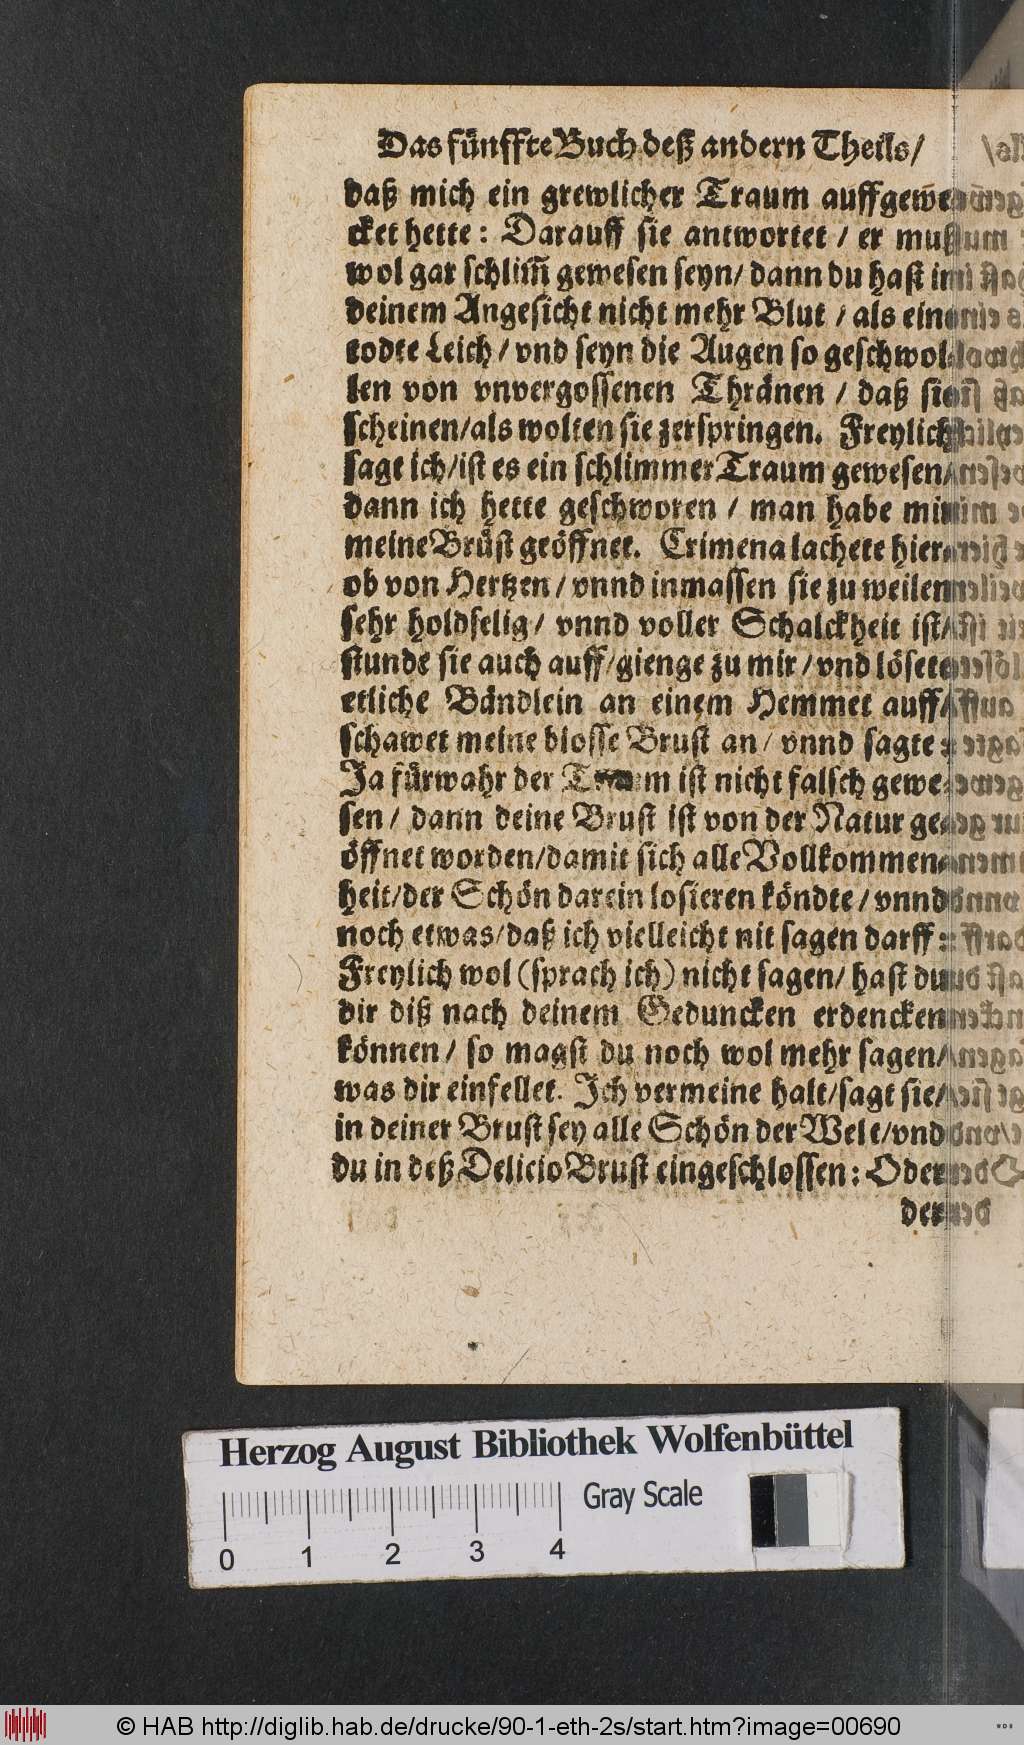 Das fünffte Buch deß andern Theils/
daß mich ein grewlicher Traum auffgewe-
cket hette: Darauff sie antwortet / er muß
wol gar schlim̃ gewesen seyn/ dann du hast in
deinem Angesicht nicht mehr Blut / als ein
todte Leich / vnd seyn die Augen so geschwol-
len von vnvergossenen Thränen / daß sie
scheinen/als wolten sie zerspringen. Freylich
sagt ich/ist es ein schlimmer Traum gewesen/
dann ich hette geschworen / man habe mir
meine Brüst geöffnet. Crimena lachete hier-
ob von Hertzen / vnnd inmassen sie zu weilen
sehr holdselig/ vnnd voller Schalckheit ist/
stunde sie auch auff/gienge zu mir / vnd lösete
etliche Bändlein an einem Hemmet auff/
schawet meine blosse Brust an/ vnnd sagte:
Ja fürwahr der Traum ist nicht falsch gewe-
sen/ dann deine Brust ist von der Natur ge-
öffnet worden/damit sich alle Vollkommen-
heit/der Schön darein losieren köndte / vnnd
noch etwas/daß ich vielleicht nit sagen darff:
Freylich wol (sprach ich) nicht sagen/ hast du
dir diß nach deinem Geduncken erdencken
können/ so magst du noch wol mehr sagen/
was dir einfellet. Ich vermeine halt/sagt sie/
in deiner Brust sey alle Schön der Welt/vnd
du in deß Delicio Brust eingeschlossen: Oder
der
Herzog August Bibliothek Wolfenbüttel
Gray Scale
0 1 2 3 4
© HAB http://diglib.hab.de/drucke/90-1-eth-2s/start.htm?image=00690